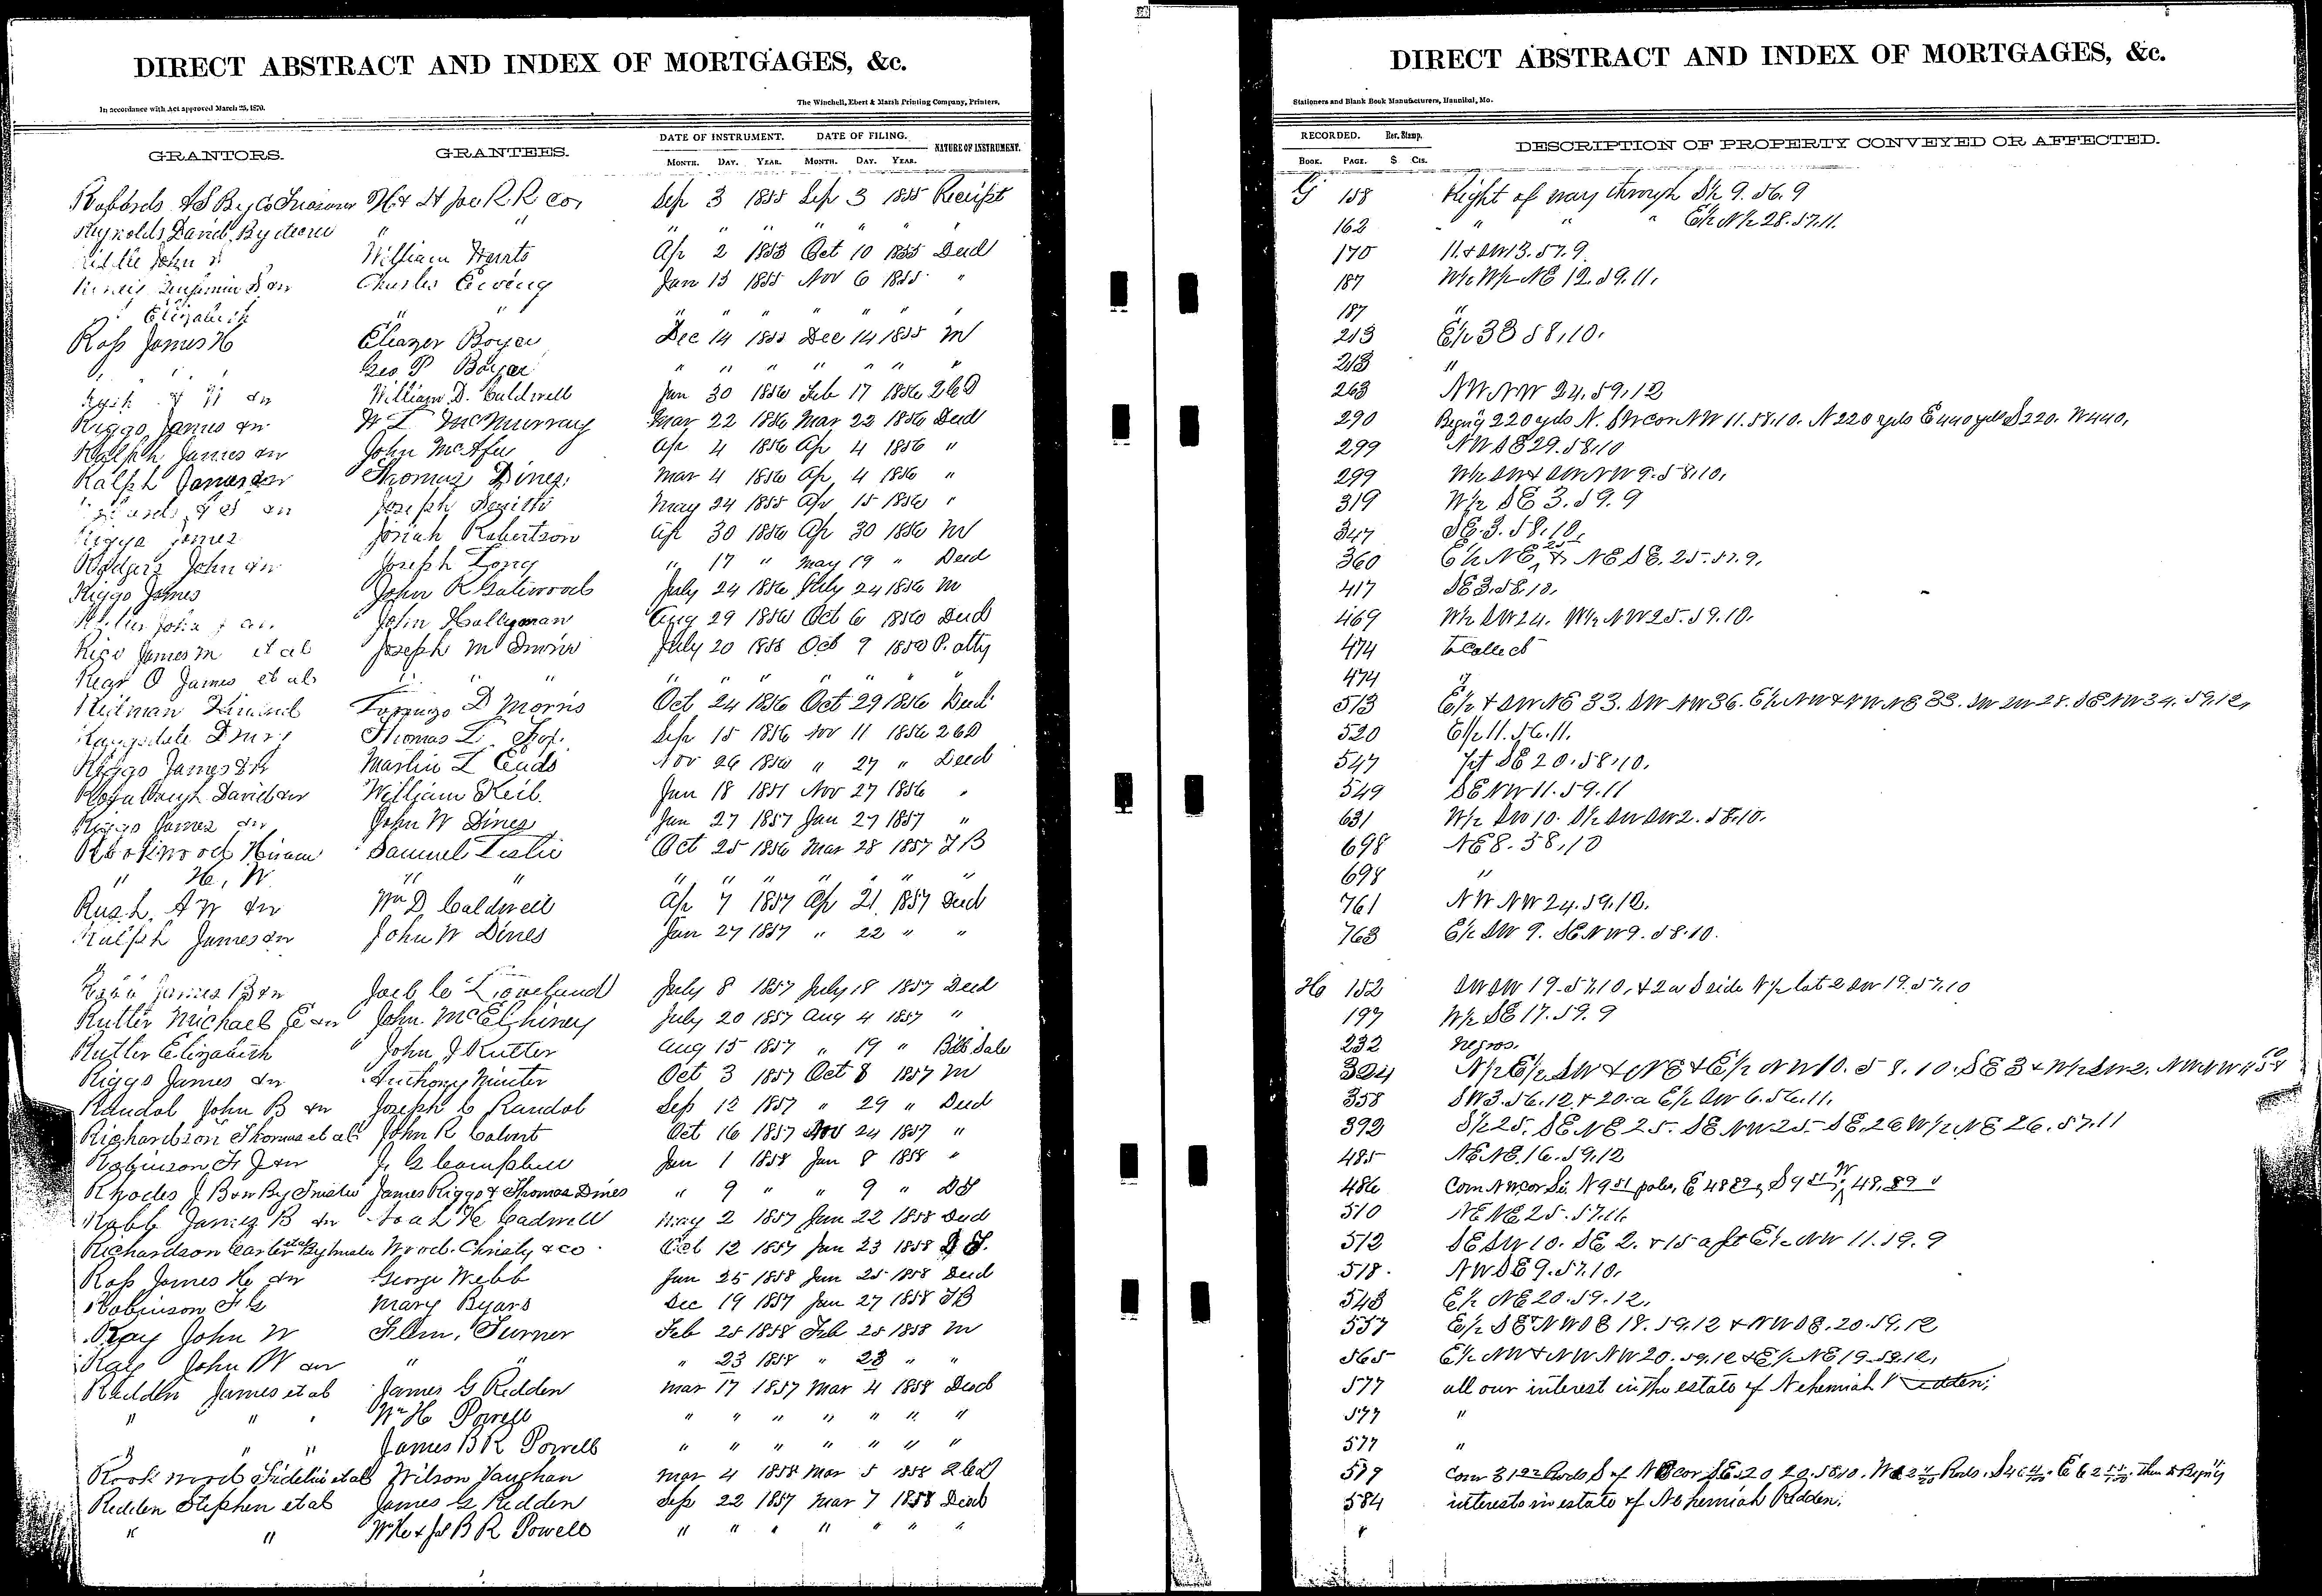 DIRECT ABSTRACT AND INDEX OF MORTGAGES, &c.
In accordance with Act approved March 25, 1870.
The Winchell, Ebert & Marsh Printing Company, Printers,
GRANTORS. GRANTEES. DATE OF INSTRUMENT. DATE OF FILING. NATURE OF INSTRUMENT.
MONTH. DAY. YEAR. MONTH. DAY. YEAR.
H & St Joe R R Co, Sep 3 1855 Sep 3 1855 Receipt
Reynolds David, By " " " " " " " "
John William Ap 2 1853 Oct 10 1855 Deed
Benjamin & wr Charles Ewing Jan 13 1855 Nov 6 1855 "
" Elizabeth " " " " " " " "
Ross James H Eliazer Boyer Dec 14 1855 Dec 14 1855 M
" " Geo P Boyer " " " " " " "
William D. Caldwell Jan 30 1856 Feb 17 1856
Riggs James &r W L McMurray Mar 22 1856 Mar 22 1856 Deed
Ralph James &r John McAfee Ap 4 1856 Ap 4 1856 "
Ralph James &r Thomas Dines. Mar 4 1856 Ap 4 1856 "
Joseph May 24 1855 Ap 15 1856 "
Riggs James Josiah Robertson Ap 30 1856 Ap 30 1856 M
Rodgers John &r Joseph Long " 17 " May 19 " Deed
Riggs James John R Gatewood July 24 1856 July 24 1856 M
John Hallyman Aug 29 1856 Oct 6 1856 Deed
James M et al Joseph M July 20 1855 Oct 9 1856 P. Atty
O James et als " " " " " " " "
Lorenzo D Morris Oct 24 1856 Oct 29 1856 Deed
Thomas L. Sep 15 1856 Nov 11 1856
Riggs James &r Martin L Eads Nov 26 1856 " 27 " Deed
David &r William Keil. Jun 18 1851 Nov 27 1856 "
Riggs James &r John W Dines Jan 27 1857 Jan 27 1857 "
Rookwood Hiram Samuel Leslie Oct 25 1856 Mar 28 1857 T B
" H. W. " " " " " " " "
Rush. A W &r Wm D Caldwell Ap 7 1857 Ap 21, 1857 Deed
Ralph James &r John W Dines Jan 27 1857 " 22 " "
James B &r Joel C Loveland July 8 1857 July 18 1857 Deed
Rutter Michael E &r John. McElhiney July 20 1857 Aug 4 1857 "
Rutter Elizabeth John J Rutter Aug 15 1857 " 19 " Bill Sale
Riggs James &r Anthony Minter Oct 3 1857 Oct 8 1857 M
Randol John B &r Joseph C Randol Sep 12 1857 " 29 " Deed
Richardson Thomas et al John R Calvert Oct 16 1857 Nov 24 1857 "
Robinson F J &r J. G Campbell Jan 1 1858 Jan 8 1858 "
Rhodes J B &r By Trustee James Riggs & Thomas Dines " 9 " " 9 " D T
Robb James B &r Noah H Cadwell May 2 1857 Jan 22 1858 Deed
Richardson Carter et al By trustee Wood. Christy & co. Oct 12 1857 Jan 23 1858 D T.
Ross James H. &r George Webb Jan 25 1858 Jan 25 1858 Deed
Robinson F G Mary Byars Dec 19 1857 Jan 27 1858 T B
Ray John W Flem. Turner Feb 25 1858 Feb 25 1858 M
Ray John W &r " " " 23 1858 " 23 " "
Redden James et al James G Redden Mar 17 1857 Mar 4 1858 Deed
" " " Wm H Powell " " " " " " "
" " " James B R Powell " " " " " " "
Rookwood Fidelio et al Wilson Vaughan Mar 4 1858 Mar 5 1858
Redden Stephen et al James G Redden Sep 22 1857 Mar 7 1858 Deed
" " Wm H & Js B R Powell " " " " " " "
DIRECT ABSTRACT AND INDEX OF MORTGAGES, &c.
Stationers and Blank Book Manufacturers, Hannibal, Mo.
RECORDED. Rev. Stamp. DESCRIPTION OF PROPERTY CONVEYED OR AFFECTED.
BOOK. PAGE. $ CTS.
G 158 Right of way through S½ 9. 56. 9
162 " " " E½ N½ 28. 57. 11.
170 11. & SW 13. 57. 9.
187 W½ W½ NE 12. 59. 11.
187 "
213 E½ 33 58, 10.
213 "
263 NW NW 24, 59, 12
290 Beging 220 yds N. SW cor NW 11. 58. 10. N 220 yds E 440 yds S 220. W 440,
299 NW SE 29. 58. 10
299 W½ SW & SW NW 9. 58. 10.
319 W½ SE 3. 59. 9
347 SE. 3. 58. 10.
360 E½ NE, 25 & NE SE. 25. 57. 9.
417 SE 3. 58. 10.
469 W½ SW 24. W½ NW 25. 59. 10.
474 to Collect
474 "
513 E½ & SW NE 33. SW NW 36. E½ NW & NW NE 33. SW SW 28. SE NW 34. 59. 12,
520 E½ 11. 56. 11.
547 Int SE 20. 58. 10.
549 SE NW 11. 59. 11
631 W½ SW 10. S½ SW SW 2. 58. 10.
698 NE 8. 58, 10
698 "
761 NW NW 24. 59. 12.
763 E½ SW 9. SE NW 9. 58. 10.
H 152 SW SW 19. 57. 10, & 2 a S side N½ lot 2 SW 19. 57. 10
197 W½ SE 17. 59. 9
232 negros.
324 N½ E½ SW & NE & E½ NW 10. 58. 10. SE 3 & W½ SW 2. NW NW
358 SW 3. 56. 12. & 20. a E½ SW 6. 56. 11.
392 S½ 25. SE NE 25. SE NW 25. SE. 26 W½ NE 26. 57. 11
485 NE NE. 16. 59. 12
486 Com NW cor Si. N 9 51 poles, E 48 89, S 9 51 W 48, 89
510 NE NE 25. 57. 11.
512 SE SW 10. SE 2. & 15 a pt E½ NW 11. 59. 9
518. NW SE 9. 57. 10.
543 E½ NE 20. 59. 12.
557 E½ SE & NW SE 18. 59. 12 & NW SE. 20. 59. 12
565 E½ NW & NW NW 20. 59. 12 & E½ NE 19. 59. 12,
577 all our interest in the estate of Nehemiah Redden;
577 "
577 "
579 Com 31 22 Rods S of NE cor SE
584 interests in estate of Nehemiah Redden.
"